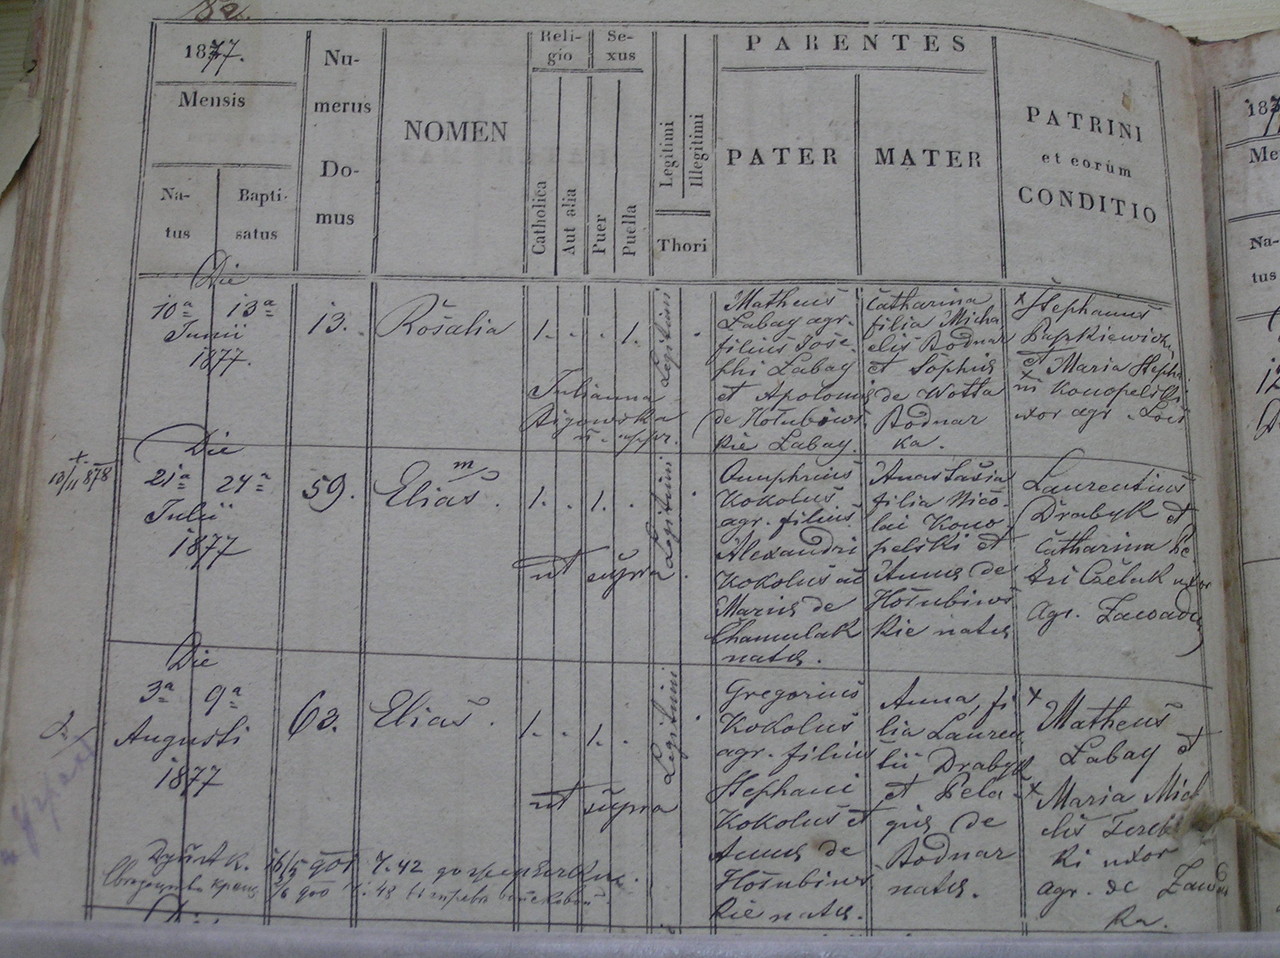 82.
1877.
Mensis
Na-
tus
Bapti-
satus
Nu-
merus
Do-
mus
NOMEN
Reli-
gio
Catholica
Aut alia
Se-
xus
Puer
Puella
Legitimi
Illegitimi
Thori
PARENTES
PATER
MATER
PATRINI
et eorum
CONDITIO
Die
10ª 13ª
Junii
1877.
13.
Rosalia
1. . . 1.
Julianna
Legitimi
Matheus
Labay agr.
filius Jose-
phi Labay
et Apolonia
de Hołubiow
kie Labay.
Catharina
filia Micha
elis Bodnar
et Sophia
de Wotta
Bodnar
ka.
x Stephanus
et Maria Stepha
ni Konopelski
uxor agr.
Die
21ª 24ª
Julii
1877
59.
Elias.
1. . 1. .
ut supra
Legitimi
Onuphrius
Kokolus
agr. filius
Alexandri
Kokolus ac
Maria de
Chamulak
nata.
Anastasia
filia Nico-
lai Kono
pelski et
Anna de
Hołubiow
kie nata
Laurentius
Drabyk et
Catharina Pe
tri uxor
agr. Zawadka
Die
3ª 9ª
Augusti
1877
62.
Elias.
1. . 1. .
ut supra
Legitimi
Gregorius
Kokolus
agr. filius
Stephani
Kokolus et
Anna de
Hołubiow
kie nata.
Anna, fi
lia Lauren
tii Drabyk
et Pela-
gia de
Bodnar
nata.
x Matheus
Labay et
x Maria Mich
elis
ki uxor
agr. de Zawad
ka.
187
Me
Na-
tus
12